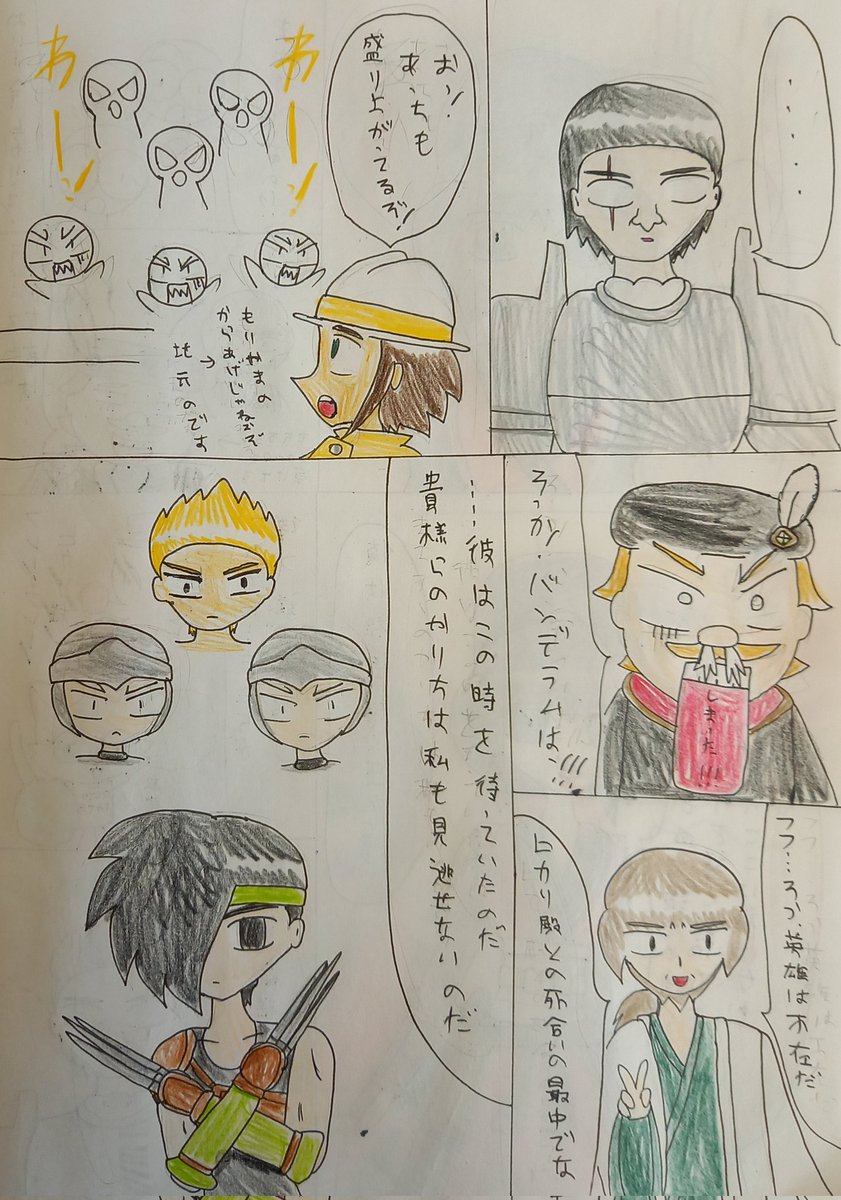 ・・・・・
おッ!
あっちも
盛り上がってるぞ!
わーッ
わーッ
もりやまの
からあげじゃねぇぞ
→
地元のです
そっかッ・バンデラムはッ!!!
しまった!!!
フフ…そう、英雄は不在だ
ヒカリ殿との死合いの最中でな
……彼はこの時を待っていたのだ
貴様らのやり方は私も見逃せないのだ